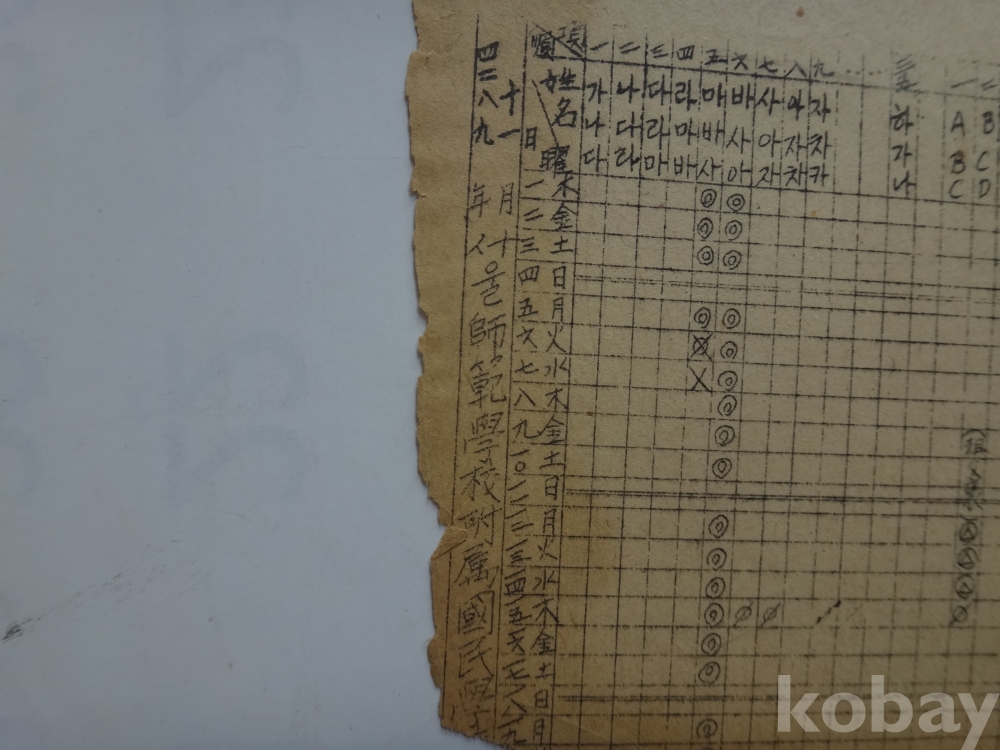 四二八九年 서울師範學校附属國民學
十一月
順 項 一 二 三 四 五 六 七 八 九
姓名 가 나 다 라 마 바 사 아 자 하 A B
나 다 라 마 바 사 아 자 차 가 B C
日 曜 다 라 마 바 사 아 자 차 카 나 C D
一 木
二 金
三 土
四 日
五 月
六 火
七 水
八 木
九 金
一〇 土
一一 日
一二 月
一三 火
一四 水
一五 木
一六 金
一七 土
一八 日
一九 月
kobay